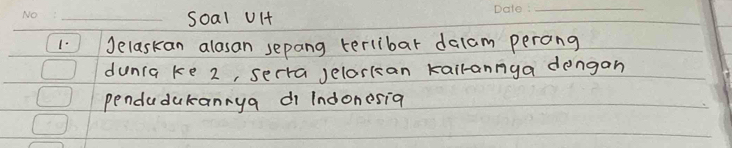 No :
Date :
Soal UH
1. Jelaskan alasan jepang terlibat dalam perang
dunia ke 2, serta jelaskan kaitannya dengan
pendudukannya di Indonesia